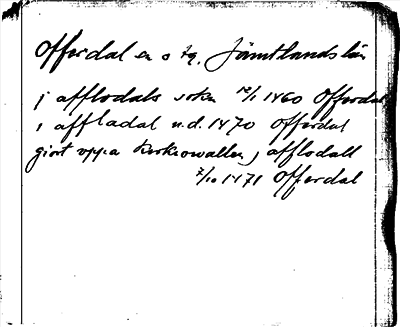 Offerdal sn o tg, Jämtlands län
j afflodals sokn 12/1 1460 Offerdal
i affladal u.d. 1470 Offerdal
giort uppa Kirkiowallen j afflodall
7/10 1471 Offerdal